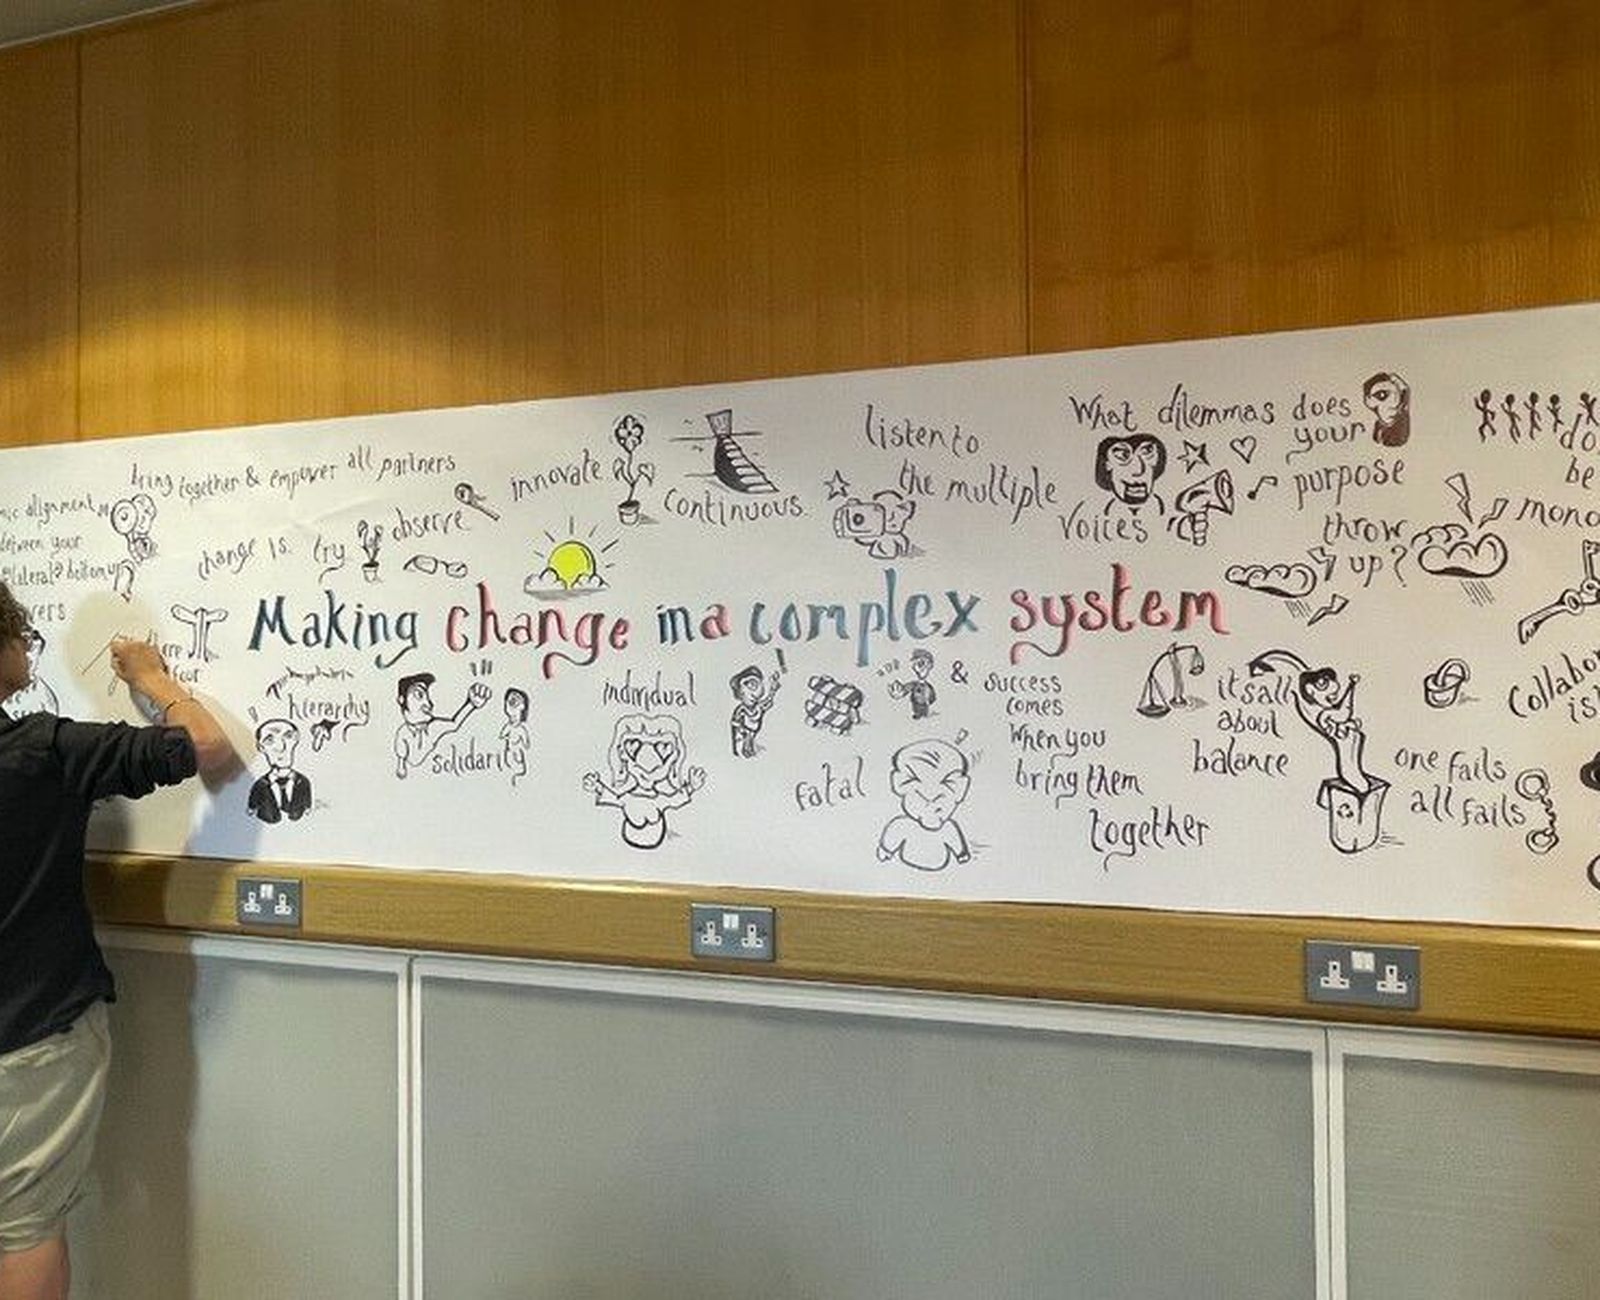 bring together & empower all partners
alignment
between your
bottom up
change is
try
observe
innovate
continuous
listen to
the multiple
voices
What dilemmas does
your
purpose
throw
up?
do
be
mono
Making change in a complex system
hierarchy
solidarity
individual
fatal
&
success
comes
when you
bring them
together
its all
about
balance
one fails
all fails
Collabor
is